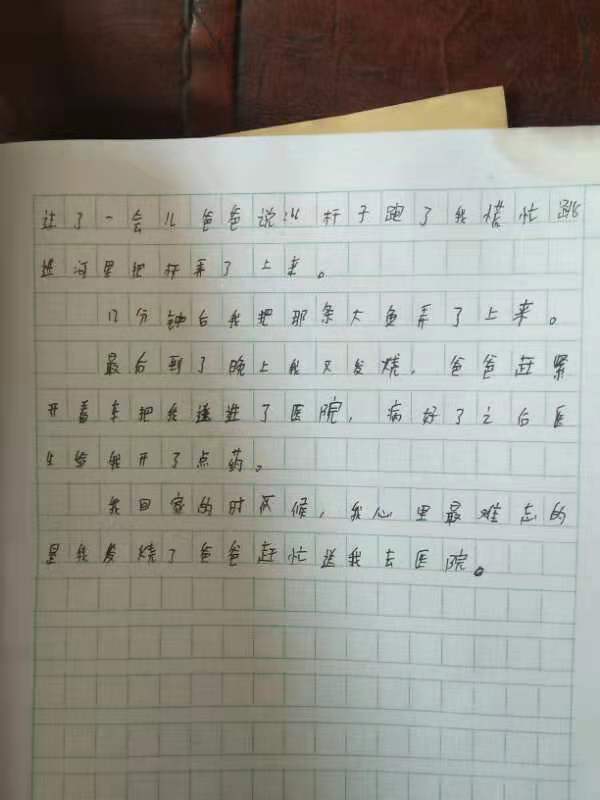 过了一会儿爸爸说:"杆子跑了我慌忙跳
进河里把杆弄了上来。
12分钟后我把那条大鱼弄了上来。
最后到了晚上我又发烧,爸爸赶紧
开着车把我送进了医院,病好了之后医
生给我开了点药。
我回家的时候,我心里最难忘的
是我发烧了爸爸赶忙送我去医院。